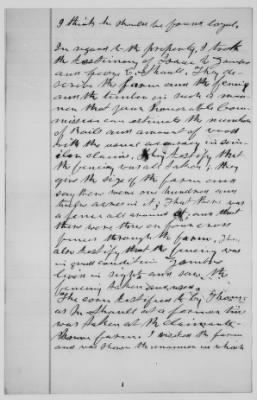 I think he should be found loyal.
In regard to the property, I took
the testimony of Isaac
and They de-
scribe the farm and the fencing
and the timber in such a man-
ner that your Honorable Com-
mission can estimate the number
of Rails and amount of wood
with the usual accuracy in simi-
lar claims. They testify that
the fencing was all taken; they
give the size of the farm and
say there were one hundred and
acres in it; That there was
a fence all around it; and that
there were three or four cross
fences through the farm. They
also testify that the fencing was
in good condition.
lives in sight and saw the
fencing taken and used.
The corn testified to by
as at a former time
was taken at the claimants
home farm. I visited the farm
and was shown the manner in which